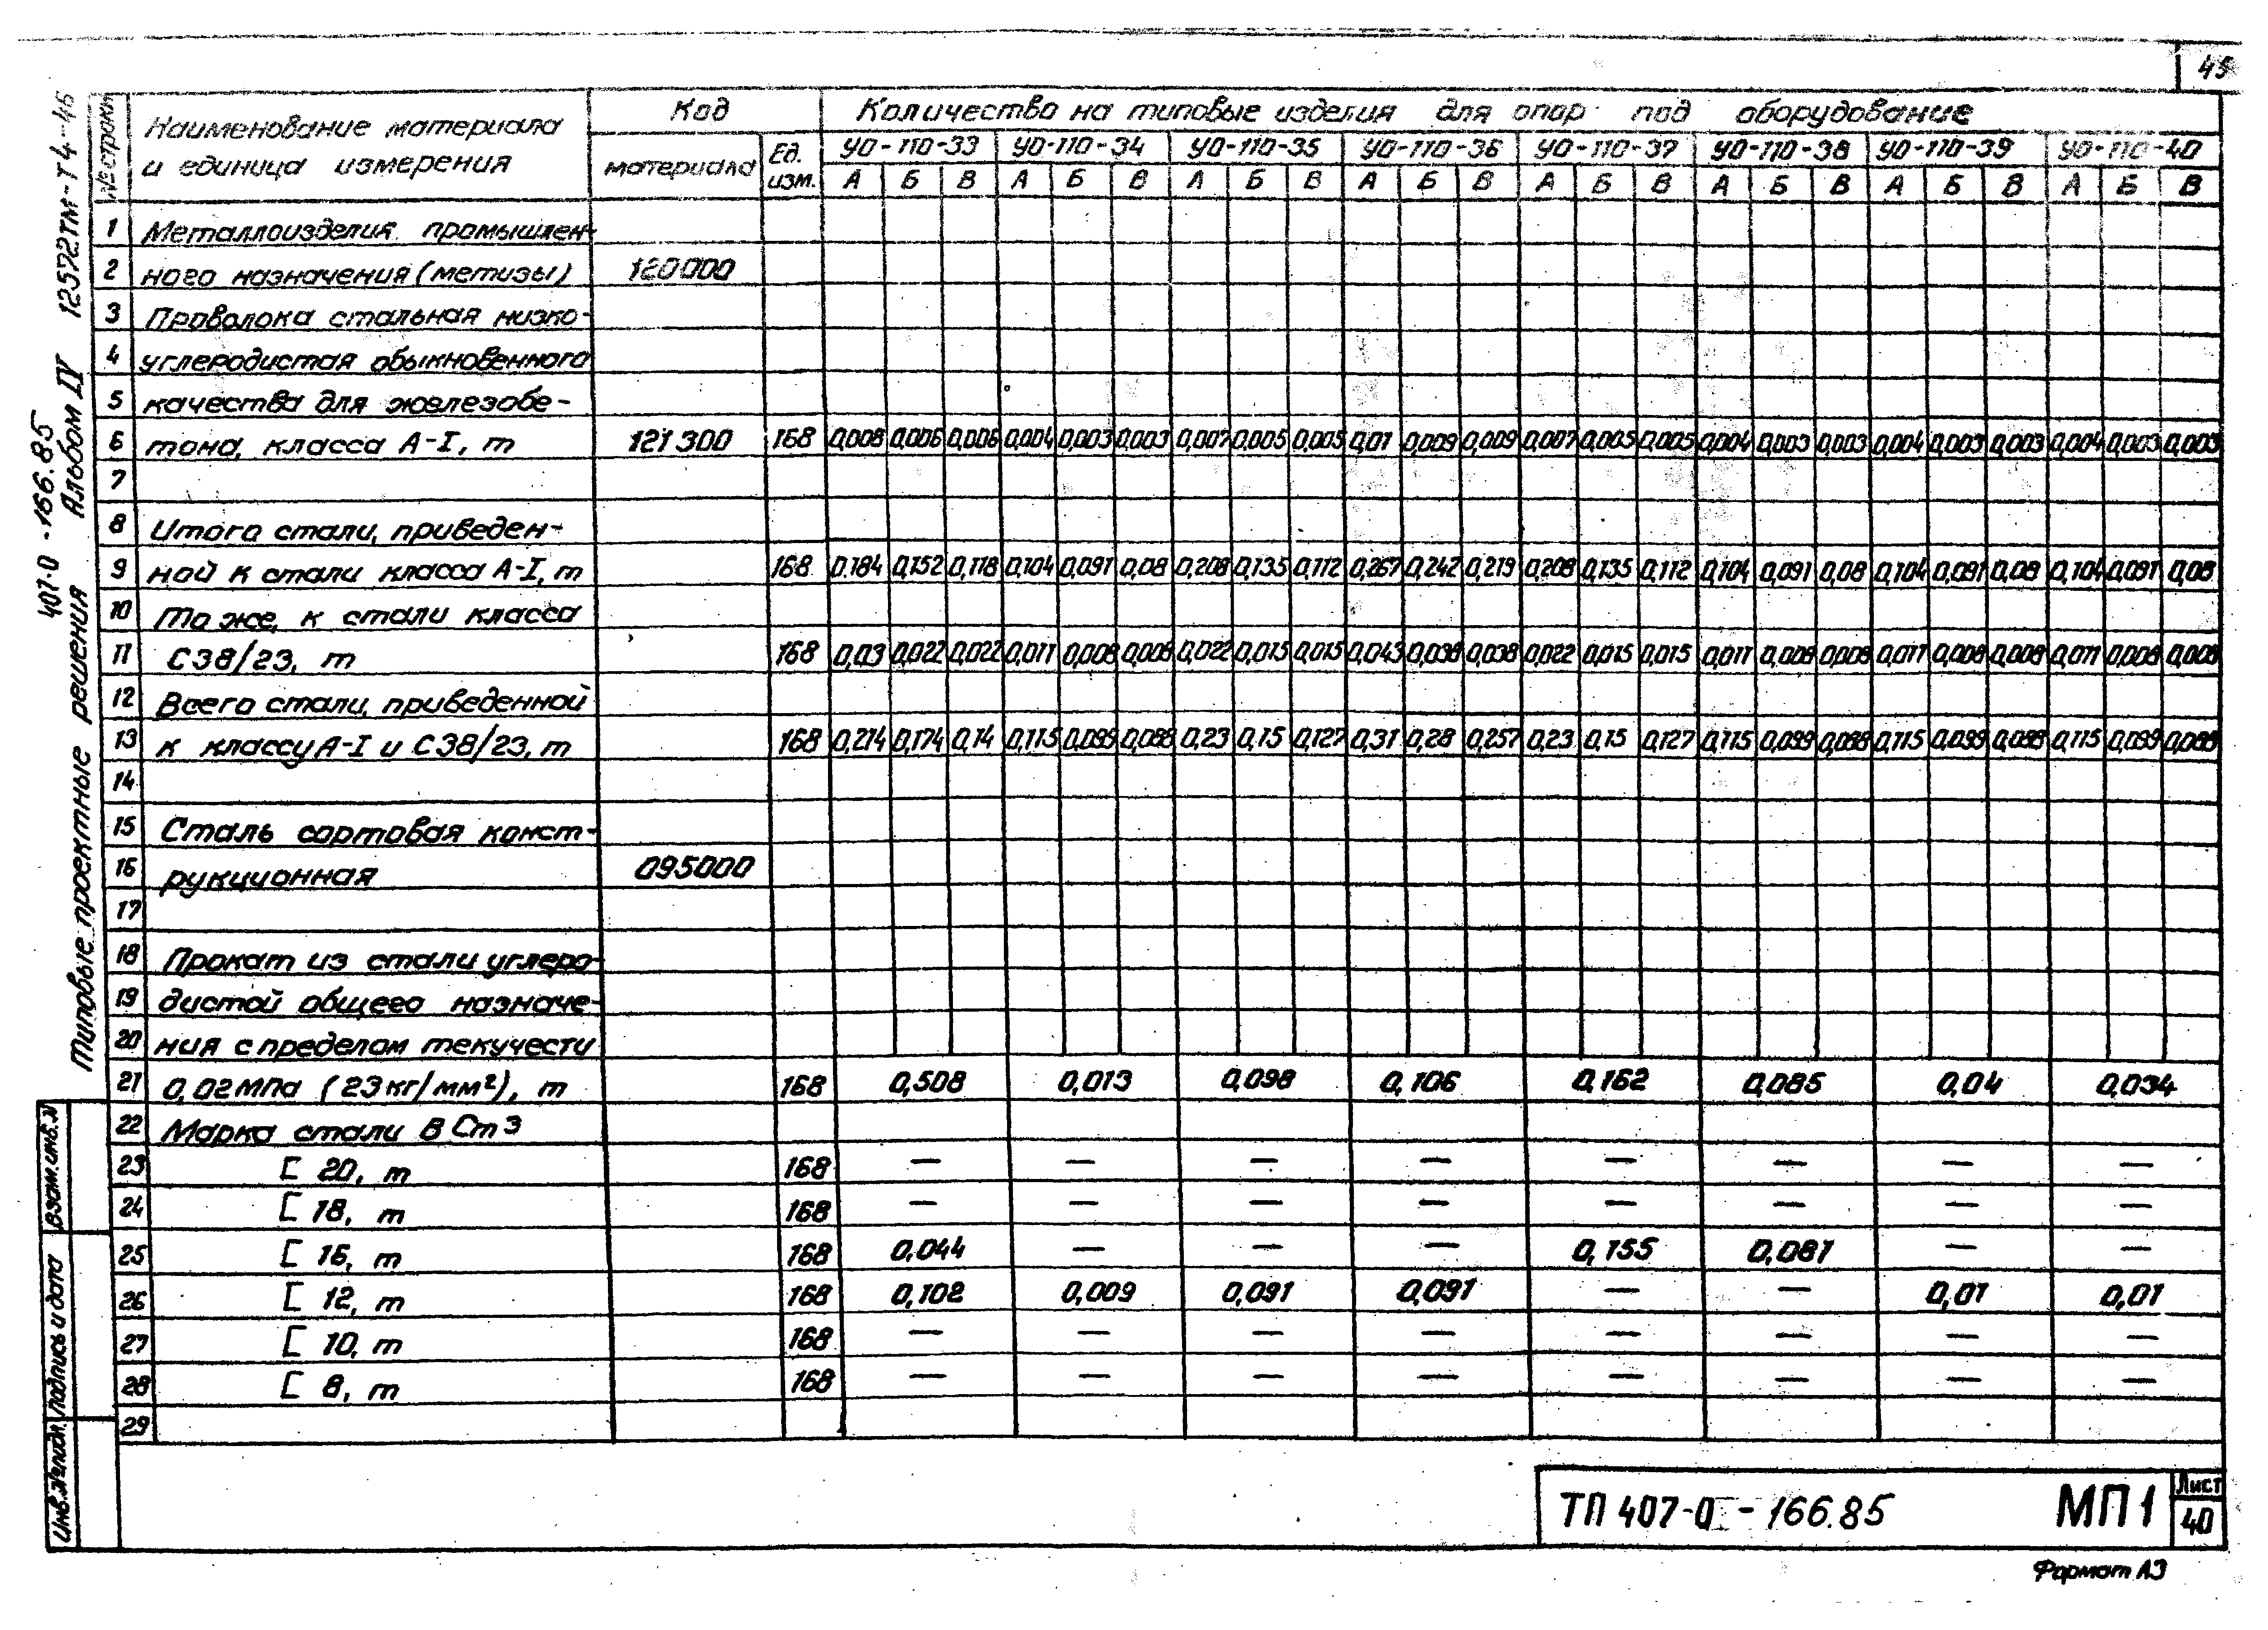 45
12572тм-т4-46
407-0-166.85
Типовые проектные решения Альбом IV
№ строки
Наименование материала и единица измерения
Код
материала
Ед. изм.
Количество на типовые изделия для опор под оборудование
УО-110-33 УО-110-34 УО-110-35 УО-110-36 УО-110-37 УО-110-38 УО-110-39 УО-110-40
А Б В А Б В А Б В А Б В А Б В А Б В А Б В А Б В
1 Металлоизделия промышлен-
2 ного назначения (метизы) 120000
3 Проволока стальная низко-
4 углеродистая обыкновенного
5 качества для железобе-
6 тона, класса А-I, т 121300 168 0,008 0,006 0,006 0,004 0,003 0,003 0,007 0,005 0,005 0,01 0,009 0,009 0,007 0,005 0,005 0,004 0,003 0,003 0,004 0,003 0,003 0,004 0,003 0,003
7
8 Итого стали, приведен-
9 ной к стали класса А-I, т 168 0.184 0,152 0,118 0,104 0,091 0,08 0,208 0,135 0,112 0,267 0,242 0,219 0,208 0,135 0,112 0,104 0,091 0,08 0,104 0,091 0,08 0,104 0,091 0,08
10 То же, к стали класса
11 С38/23, т 168 0,03 0,022 0,022 0,011 0,008 0,008 0,022 0,015 0,015 0,043 0,038 0,038 0,022 0,015 0,015 0,011 0,008 0,008 0,011 0,008 0,008 0,011 0,008 0,008
12 Всего стали, приведенной
13 к классу А-I и С38/23, т 168 0,214 0,174 0,14 0,115 0,099 0,088 0,23 0,15 0,127 0,31 0,28 0,257 0,23 0,15 0,127 0,115 0,099 0,088 0,115 0,099 0,088 0,115 0,099 0,088
14
15 Сталь сортовая конст-
16 рукционная 095000
17
18 Прокат из стали углеро-
19 дистой общего назначе-
20 ния с пределом текучести
21 0,02МПа (23кг/мм²), т 168 0,508 0,013 0,098 0,106 0,162 0,085 0,04 0,034
22 Марка стали В Ст 3
23 [ 20, т 168 — — — — — — — —
24 [ 18, т 168 — — — — — — — —
25 [ 16, т 168 0,044 — — — 0,155 0,081 — —
26 [ 12, т 168 0,102 0,009 0,091 0,091 — — 0,01 0,01
27 [ 10, т 168 — — — — — — — —
28 [ 8, т 168 — — — — — — — —
29
Взам.инв.№
Подпись и дата
Инв.№подл.
ТП 407-0-166.85 МП1
Лист
40
Формат А3